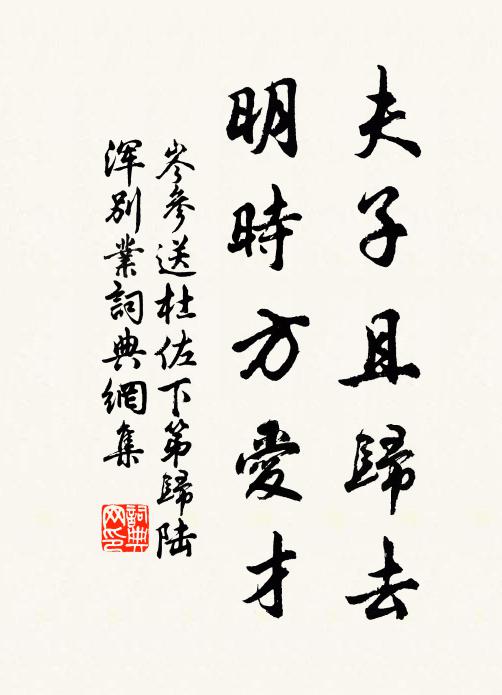 夫子且歸去
明時方愛才
岑參送杜佐下第歸陸
渾別業詞典網集
詞典
网印